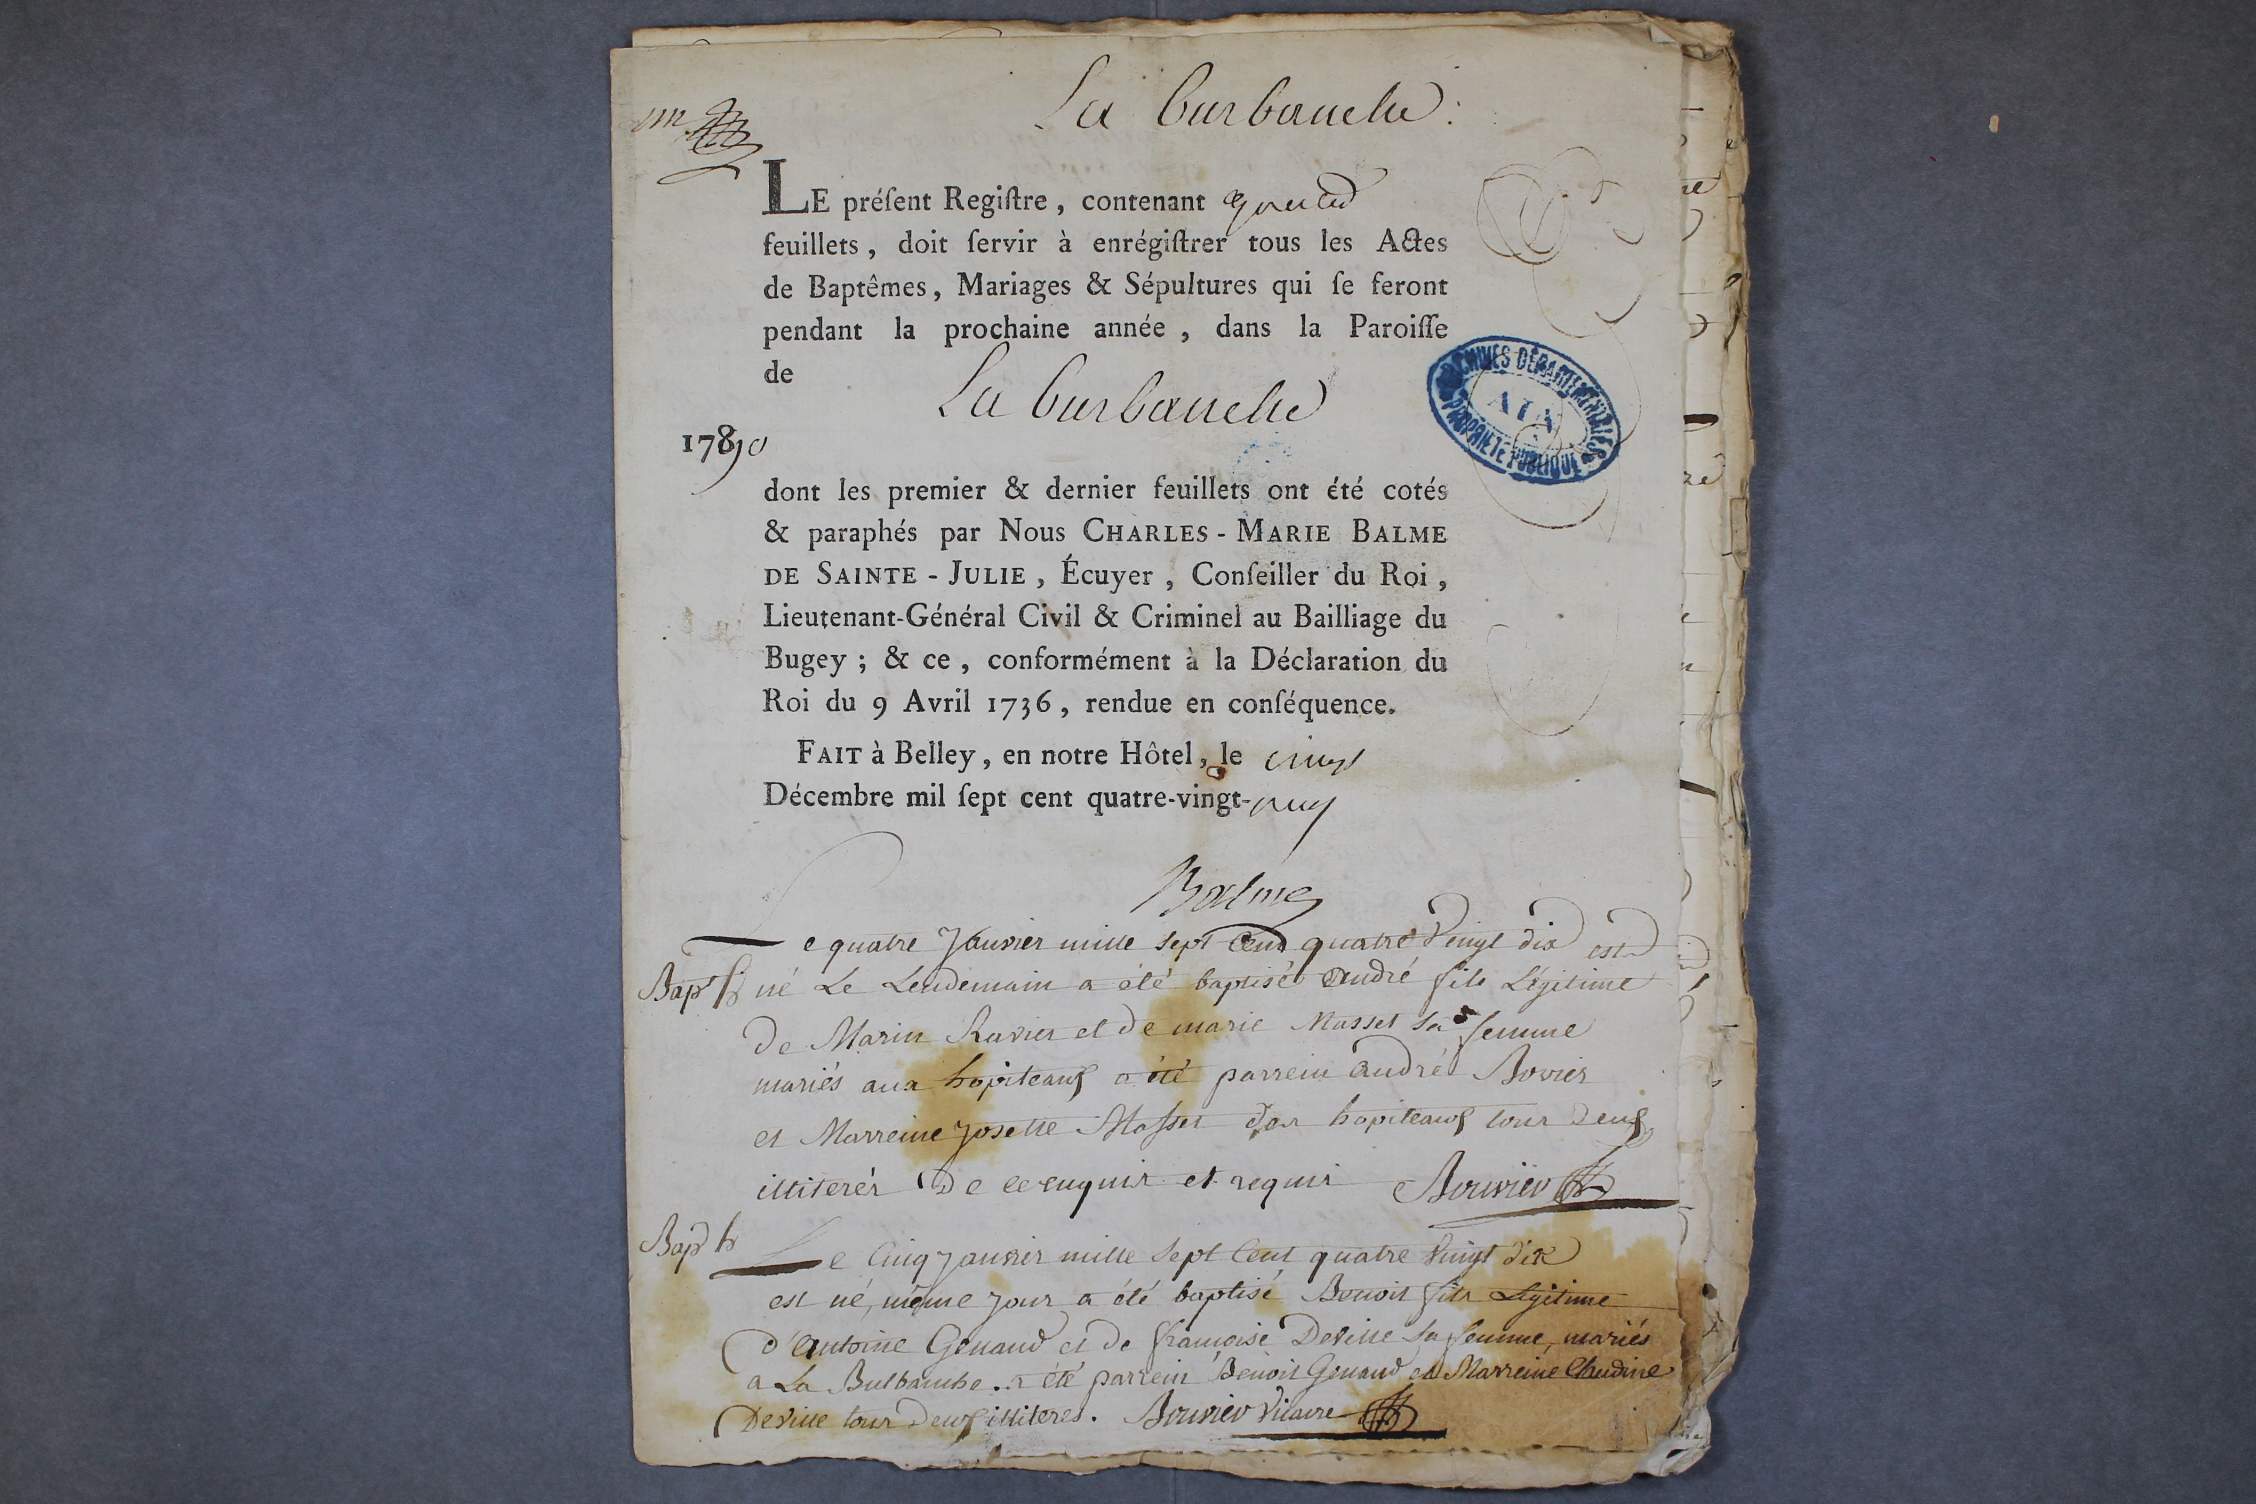 La burbanche :
un
LE préſent Regiſtre, contenant
feuillets, doit ſervir à enrégiſtrer tous les Actes
de Baptêmes, Mariages & Sépultures qui ſe feront
pendant la prochaine année, dans la Paroiſſe
de
La burbanche
ARCHIVES DÉPARTEMENTALES
AIN
PROPRIÉTÉ PUBLIQUE
1790
dont les premier & dernier feuillets ont été cotés
& paraphés par Nous CHARLES-MARIE BALME
DE SAINTE-JULIE, Écuyer, Conſeiller du Roi,
Lieutenant-Général Civil & Criminel au Bailliage du
Bugey ; & ce, conformément à la Déclaration du
Roi du 9 Avril 1736, rendue en conſéquence.
FAIT à Belley, en notre Hôtel, le vingt
Décembre mil ſept cent quatre-vingt-neuf
Balme
Le quatre Janvier mille sept Cent quatre Vingt dix est
Bap né Le Lendemain a été baptisé andré fils Légitime
de Marin Ravier et de marie Masset sa femme
mariés aux hopiteaux a été parrein andré Bovier
et Marreine Josette Masset des hopiteaux tous deux
illiterés De ce enquis et requis Bouvier
Bap Le Cinq Janvier mille Sept Cent quatre Vingt dix
est né, même Jour a été baptisé Benoit fils Légitime
d'antoine Genaud et de françoise Deville sa femme, mariés
a La Bulbanche . a été parrein Benoit Genaud et Marreine Claudine
Deville tous deux illiteres. Bouvier Vicaire